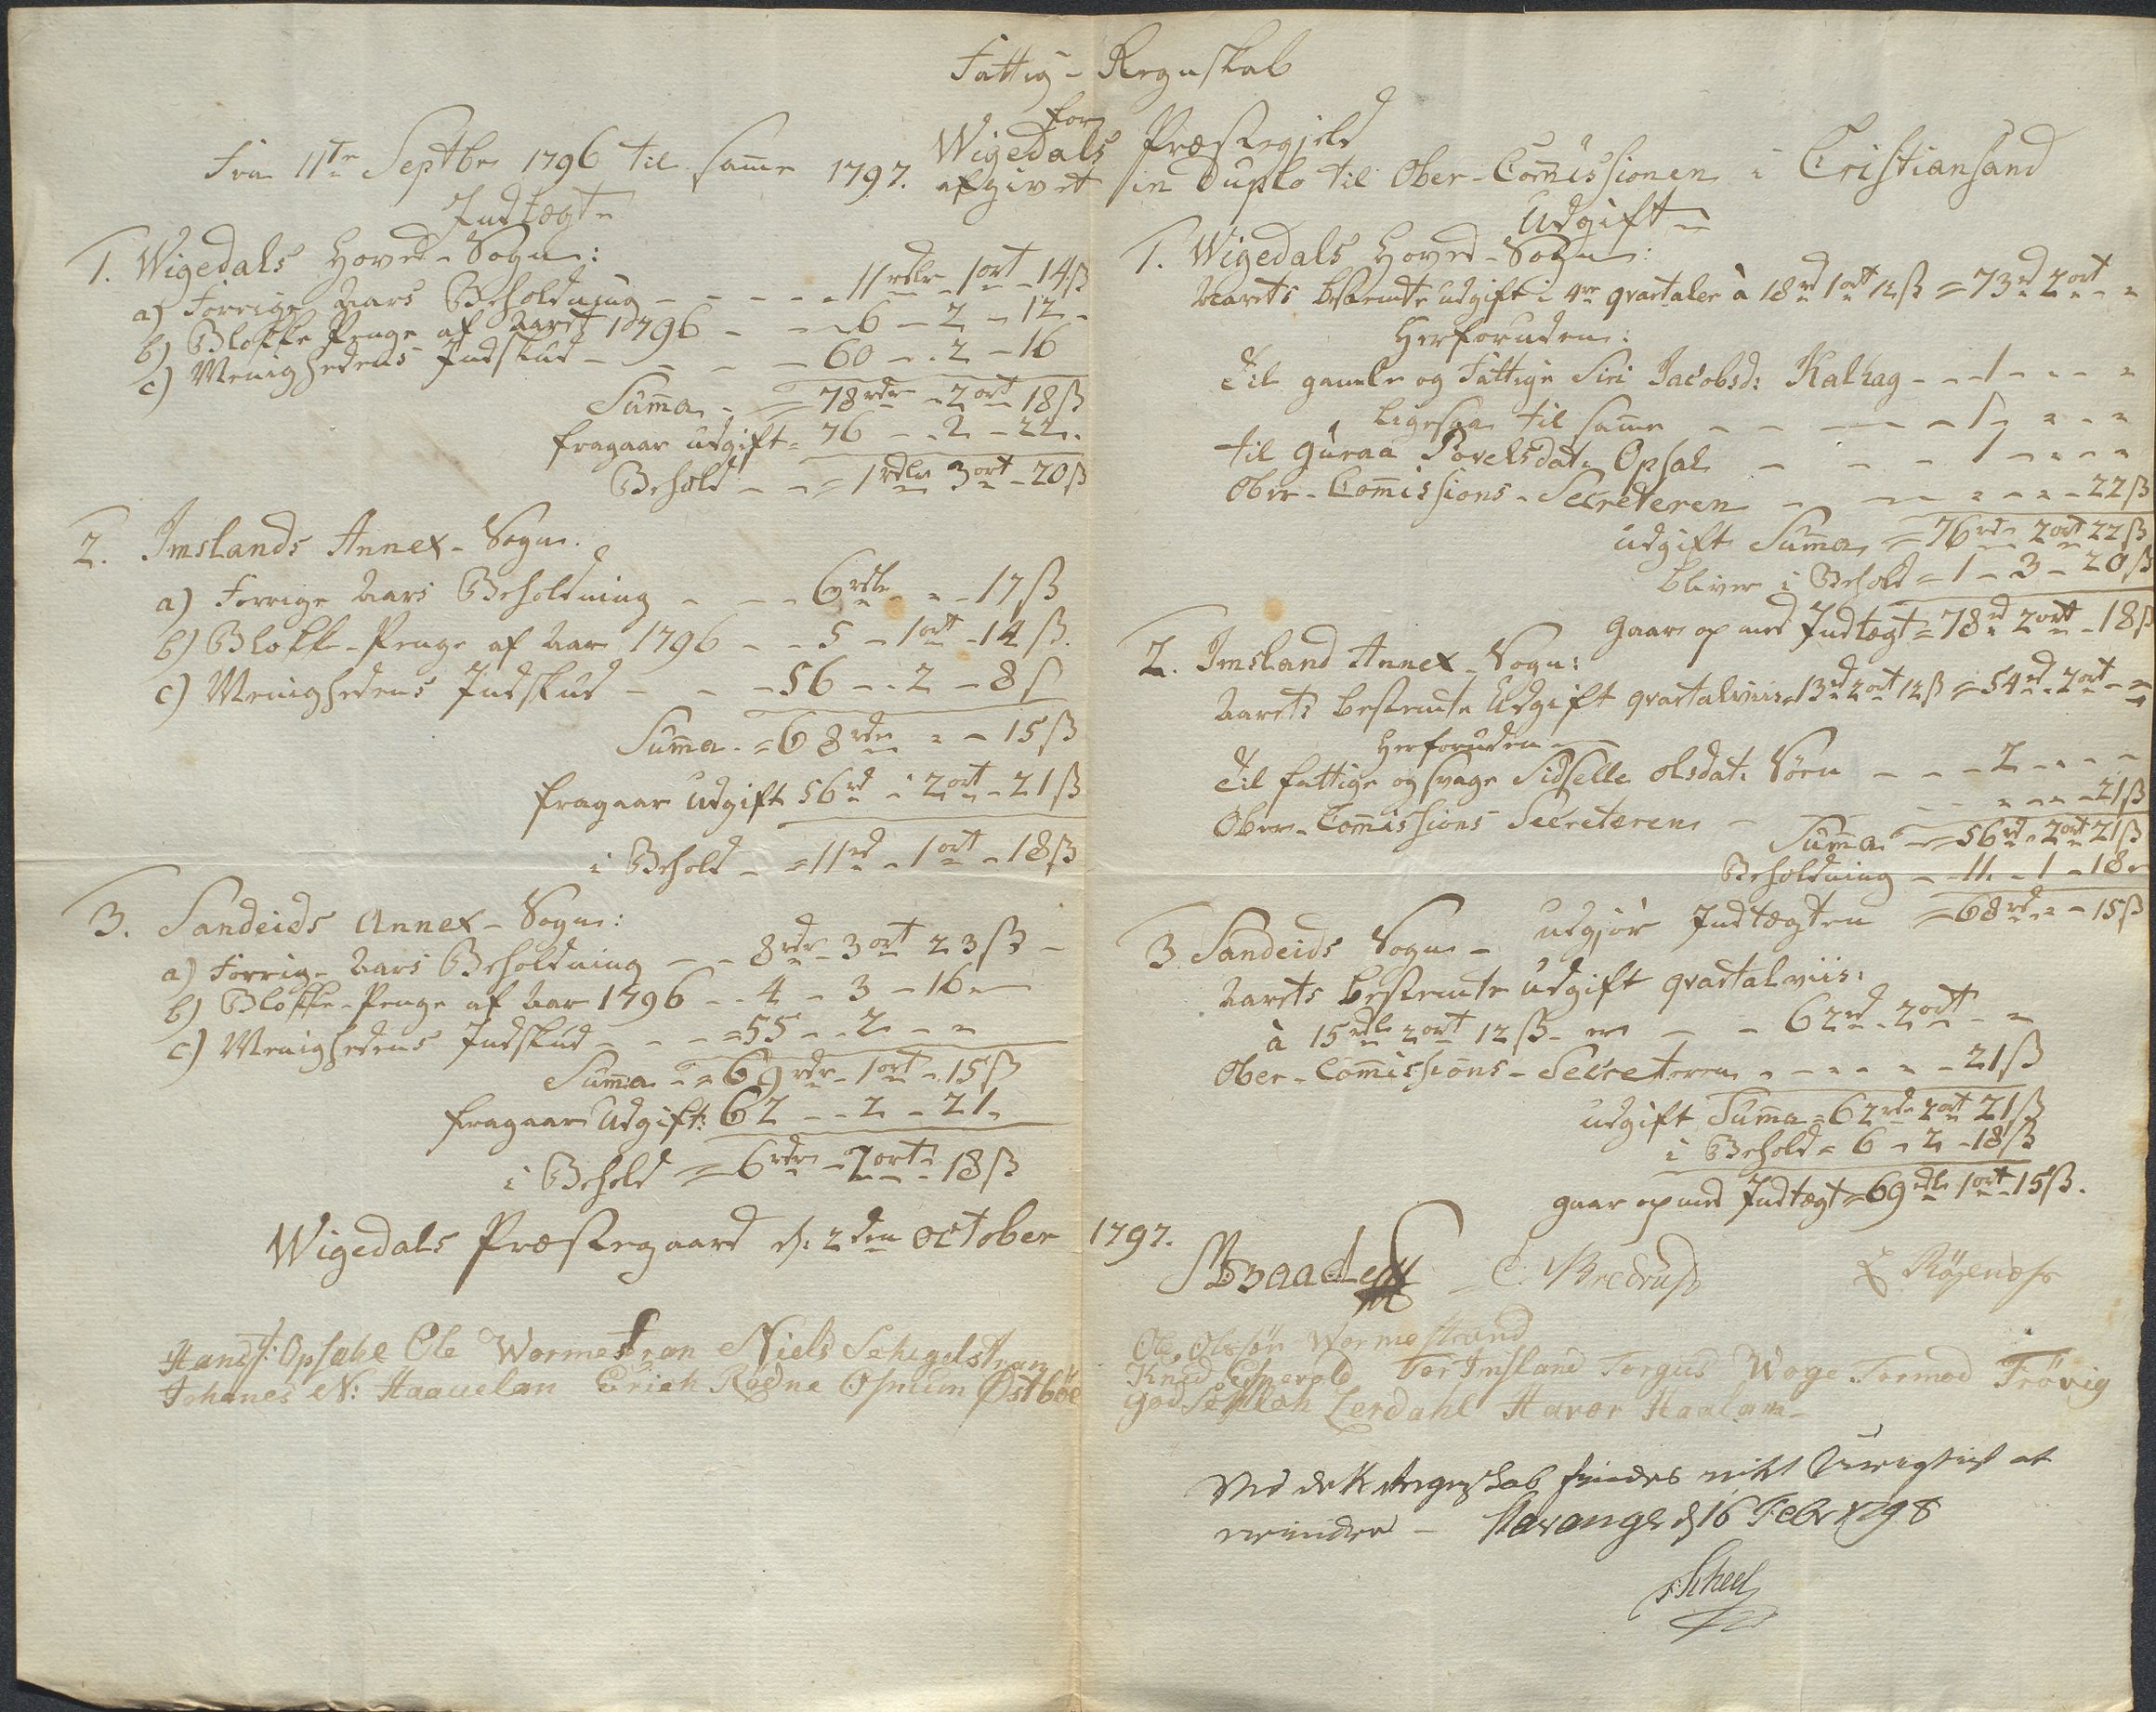 Fattig-Regnskab
for
Wigedals Præstegield
Fra 11te Septbr 1796 til samme 1797. afgivet in Duplo til Ober-Comissionen i Cristiansand
Indtægt
1. Wigedals Hoved-Sogn:
a) Forrige Aars Beholdning - - - - 11 rdlr - 1 ort - 14 ß
b) Blokke Penge af Aaret 1796 - - - 6 - 2 - 12 -
c) Menighedens Indskud - - - - 60 - - 2 - 16
Suma - = 78 rdr - 2 ort 18 ß
fragaar udgift = 76 - - 2 - 22 -
Behold - - = 1 rdlr 3 ort - 20 ß
2. Imslands Annex-Sogn.
a) Forrige Aars Beholdning - - - 6 rdlr - - - 17 ß
b) Blokke-Penge af Aar 1796 - - 5 - 1 ort - 14 ß.
c) Menighedens Indskud - - - 56 - - 2 - 8 ß
Suma - = 68 rdr - - 15 ß
fragaar Udgift 56 rd - 2 ort - 21 ß
i Behold - = 11 rd - 1 ort - 18 ß
3. Sandeids Annex-Sogn:
a) Forrige Aars Beholdning - - 8 rdr - 3 ort 23 ß -
b) Blokke-Penge af Aar 1796 - - 4 - 3 - 16 -
c) Menighedens Indskud - - - = 55 - - 2 - -
Suma - = 69 rdr - 1 ort - 15 ß
fragaar Udgift: 62 - - 2 - 21 -
i Behold = 6 rdr - 2 ort - 18 ß
Udgift
1. Wigedals Hoved-Sogn:
Aarets bestemte udgift i 4re qvartaler à 18 rd 1 ort 12 ß = 73 rd 2 ort - -
Herforuden:
Til gamle og Fattige Siri Jacobsd: Kalhag - - 1 - - - -
Ligesaa til samme - - - - 1 - - - -
til Guraa Povelsdat. Opsal - - - 1 - - - -
Ober-Comissions-Secreteren - - - - - 22 ß
udgift Suma = 76 rdr 2 ort 22 ß
bliver i Behold = 1 - 3 - 20 ß
gaar op med Indtægt = 78 rd 2 ort - 18 ß
2. Imsland Annex-Sogn:
Aarets bestemte Udgift qvartalviis 13 rd 2 ort 12 ß = 54 rd - 2 ort - =
Herforuden -
Til fattige og svage Sidselle Olsdat. Vøen - - - 2 - - - -
Ober-Comissions Secreteren - - - - - - 21 ß
Suma = 56 rd - 2 ort 21 ß
Beholdning - 11 - 1 - 18 -
udgjør Indtægten = 68 rd - - 15 ß
3 Sandeids Sogn -
Aarets bestemte Udgift qvartalviis:
à 15 rdlr 2 ort 12 ß - er - - 62 rd - 2 ort - =
Ober-Comissions-Secreteren - - - - - 21 ß
udgift Suma = 62 rdr 2 ort 21 ß
i Behold = 6 - 2 - 18 ß
gaar op med Indtægt = 69 rdlr 1 ort 15 ß.
Wigedals Præstegaard d: 2den October 1797.
Baade C. Bredrup Røyenæss
Hans Opsahl Ole Wormestran Niels Schigelstran
Johanes N: Haauelan Erich Rødne Osmun Østböe
Ole Olssøn Wormestrand
Knud Tor Imsland Torgus Woge Tormod Frövig
Lerdahl Havor Haalam
Ved dette Regnskab findes intet Urigtigt at
erindre - Stavanger d 16 Febr 1798
Scheel